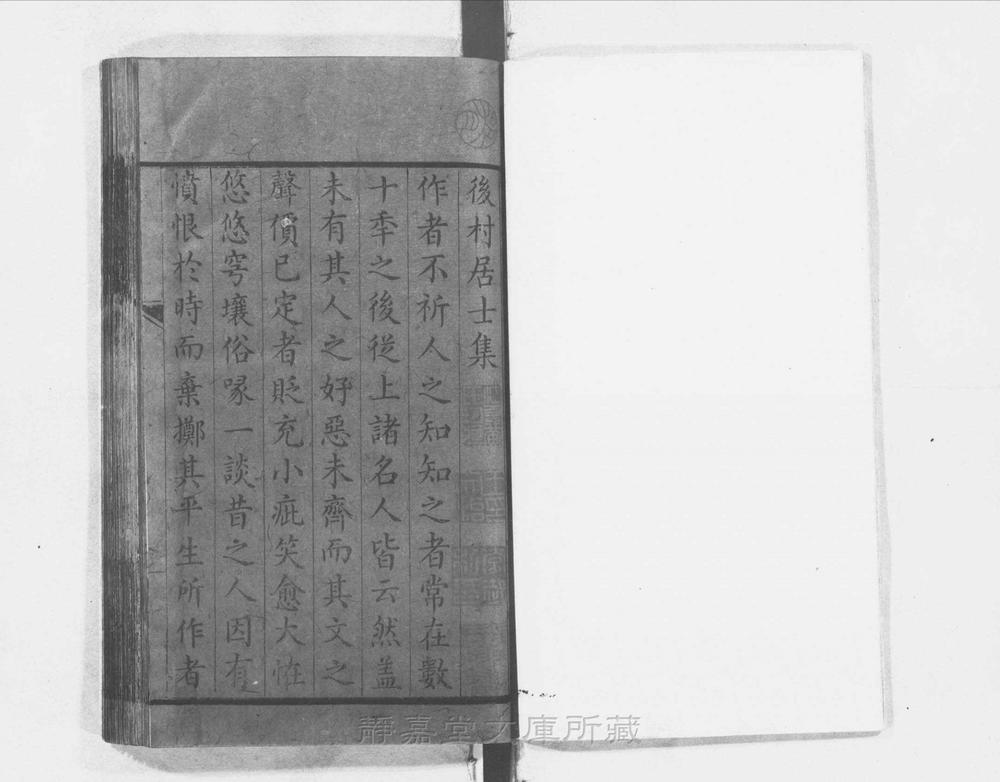 後村居士集
作者不祈人之知知之者常在數
十季之後從上諸名人皆云然盖
未有其人之好惡未齊而其文之
聲價已定者貶充小疵笑愈大恠
悠悠穹壤俗喙一談昔之人因有
憤恨於時而棄擲其平生所作者
靜嘉堂文庫所藏